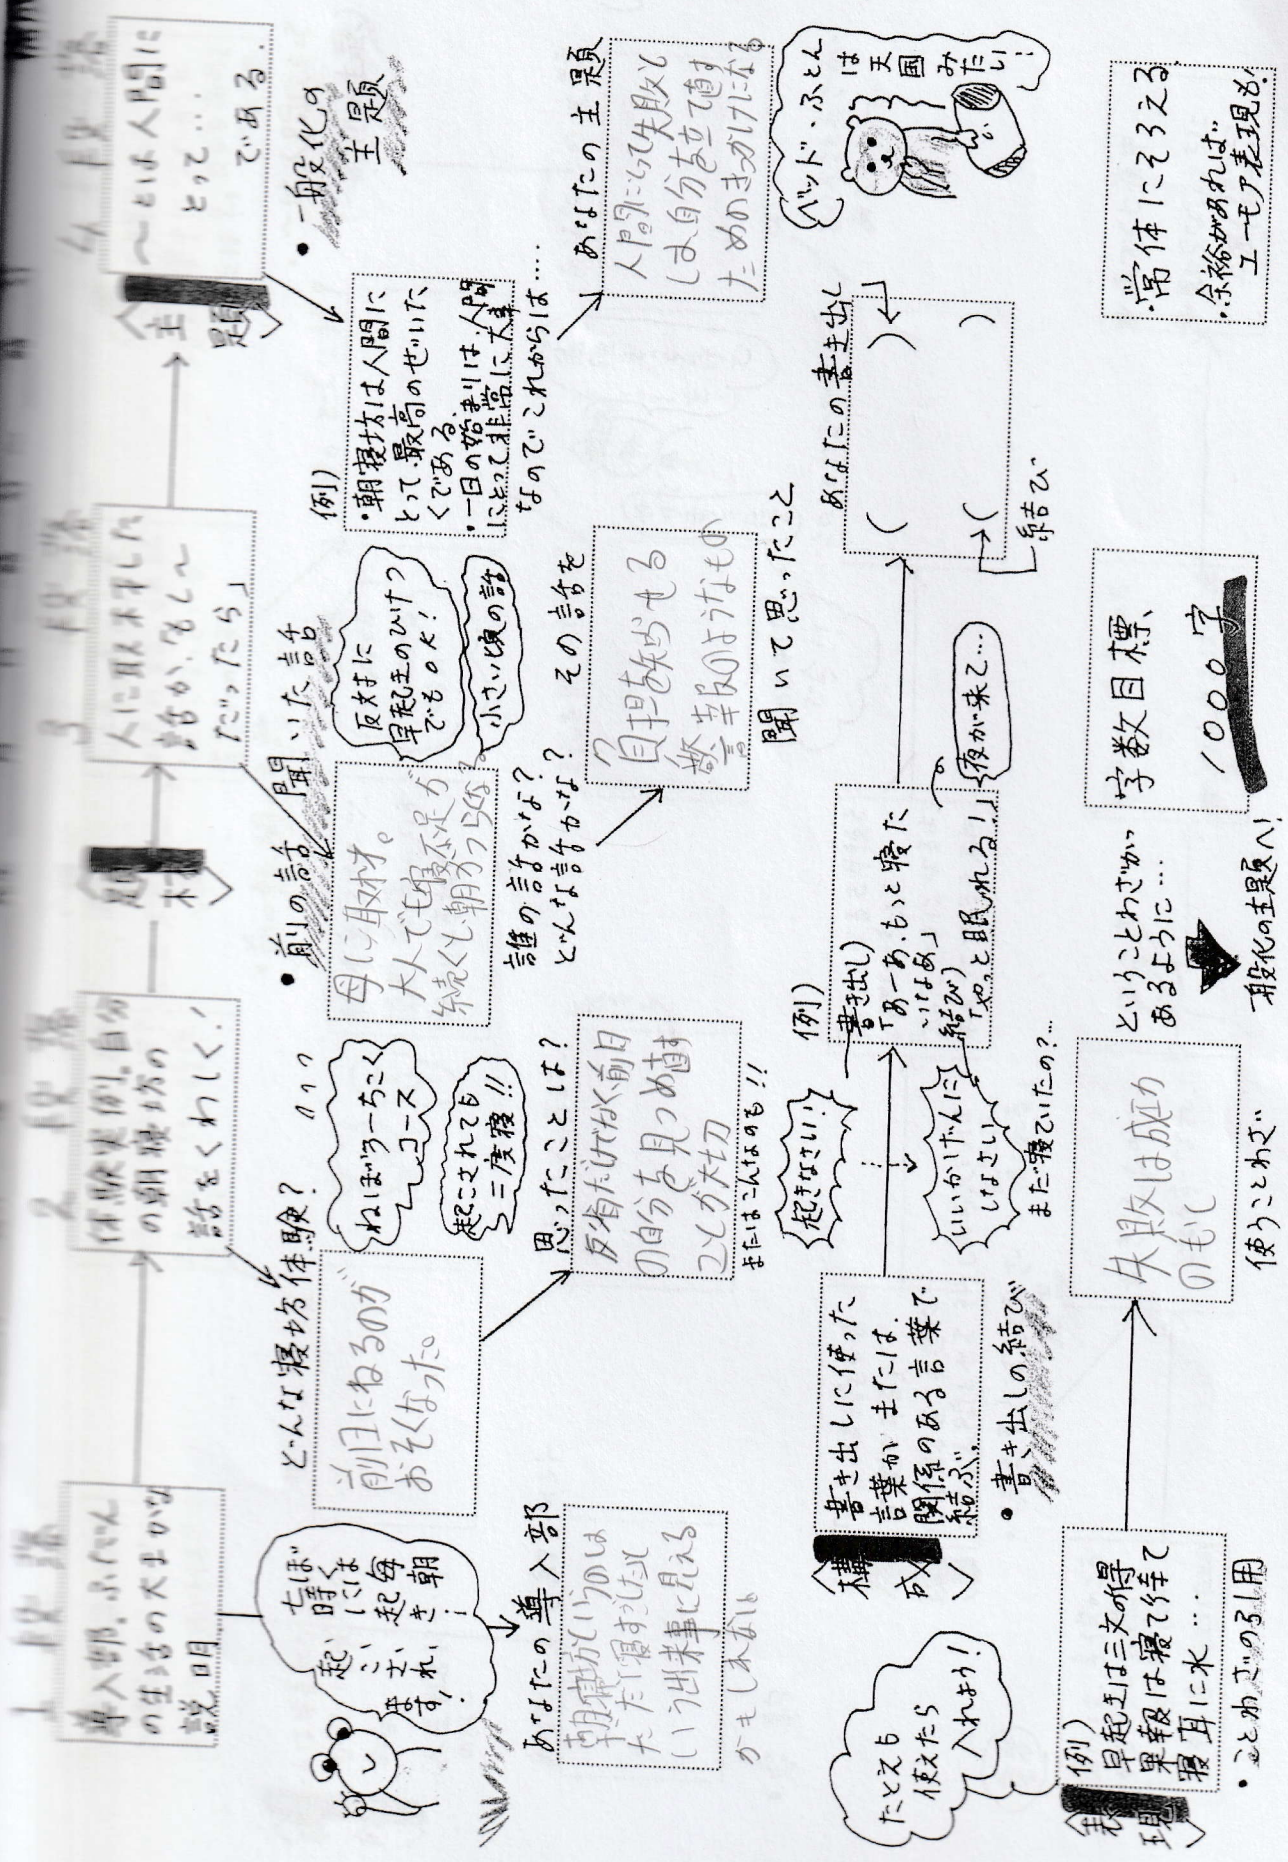 1段落
導入部。ふだん
の生活の大まかな
説明
2段落
体験実例。自分
の朝寝坊の
話をくわしく！
〈題材〉
3段落
人に取材した
話か「もし〜
だったら」
〈主題〉
4段落
〜とは人間に
とって…
である。
・一般化の
主題
ぼくは毎朝
七時に起き
起こされ
ます！
あなたの導入部
朝寝坊というのは
ただ寝すごしたと
いう出来事に見える
かもしれない
どんな寝坊体験？
前日にねるのが
おそくなった。
ねぼう一ちこく
コース
起こされても
二度寝！！
思ったことは？
反省だけでなく前日
の自分を見つめ直す
ことが大切
またはこんなのも！！
・前の話聞いた話
母に取材。
大人でも寝不足が
続くと朝がつらくなる
反対に
早起きのひけつ
でもOK！
小さい頃の話
誰の話かな？
どんな話かな？
その話を
負担を知らせる
警報のようなもの
聞いて思ったこと
例）
・朝寝坊は人間に
とって最高のぜいた
くである。
・一日の始まりは、人間
にとって非常に大事
なのでこれからは‥‥
あなたの主題
人間にとって失敗と
は自分を立て直す
ためのきっかけになる
ベッド・ふとん
は天国みたい！
〈構成〉
書き出しに使った
言葉か または、
関係のある言葉で
結ぶ。
・書き出しの結び
起きなさい！
いいかげんに
しなさい
まだ寝ていたの？…
例）
書き出し）
「あーあ、もっと寝た
いなあ」
結び）
「やっと眠れる！」
夜が来て…
あなたの書き出し
（　）
（　）
結び
たとえも
使えたら
入れよう！
〈表現〉
例）
早起きは三文の得
果報は寝て待て
寝耳に水…
・ことわざの引用
失敗は成功
のもと
使うことわざ
ということわざが
あるように…
一般化の主題へ！
字数目標、
1000字
・常体にそろえる
・余裕があれば
ユーモア表現も！